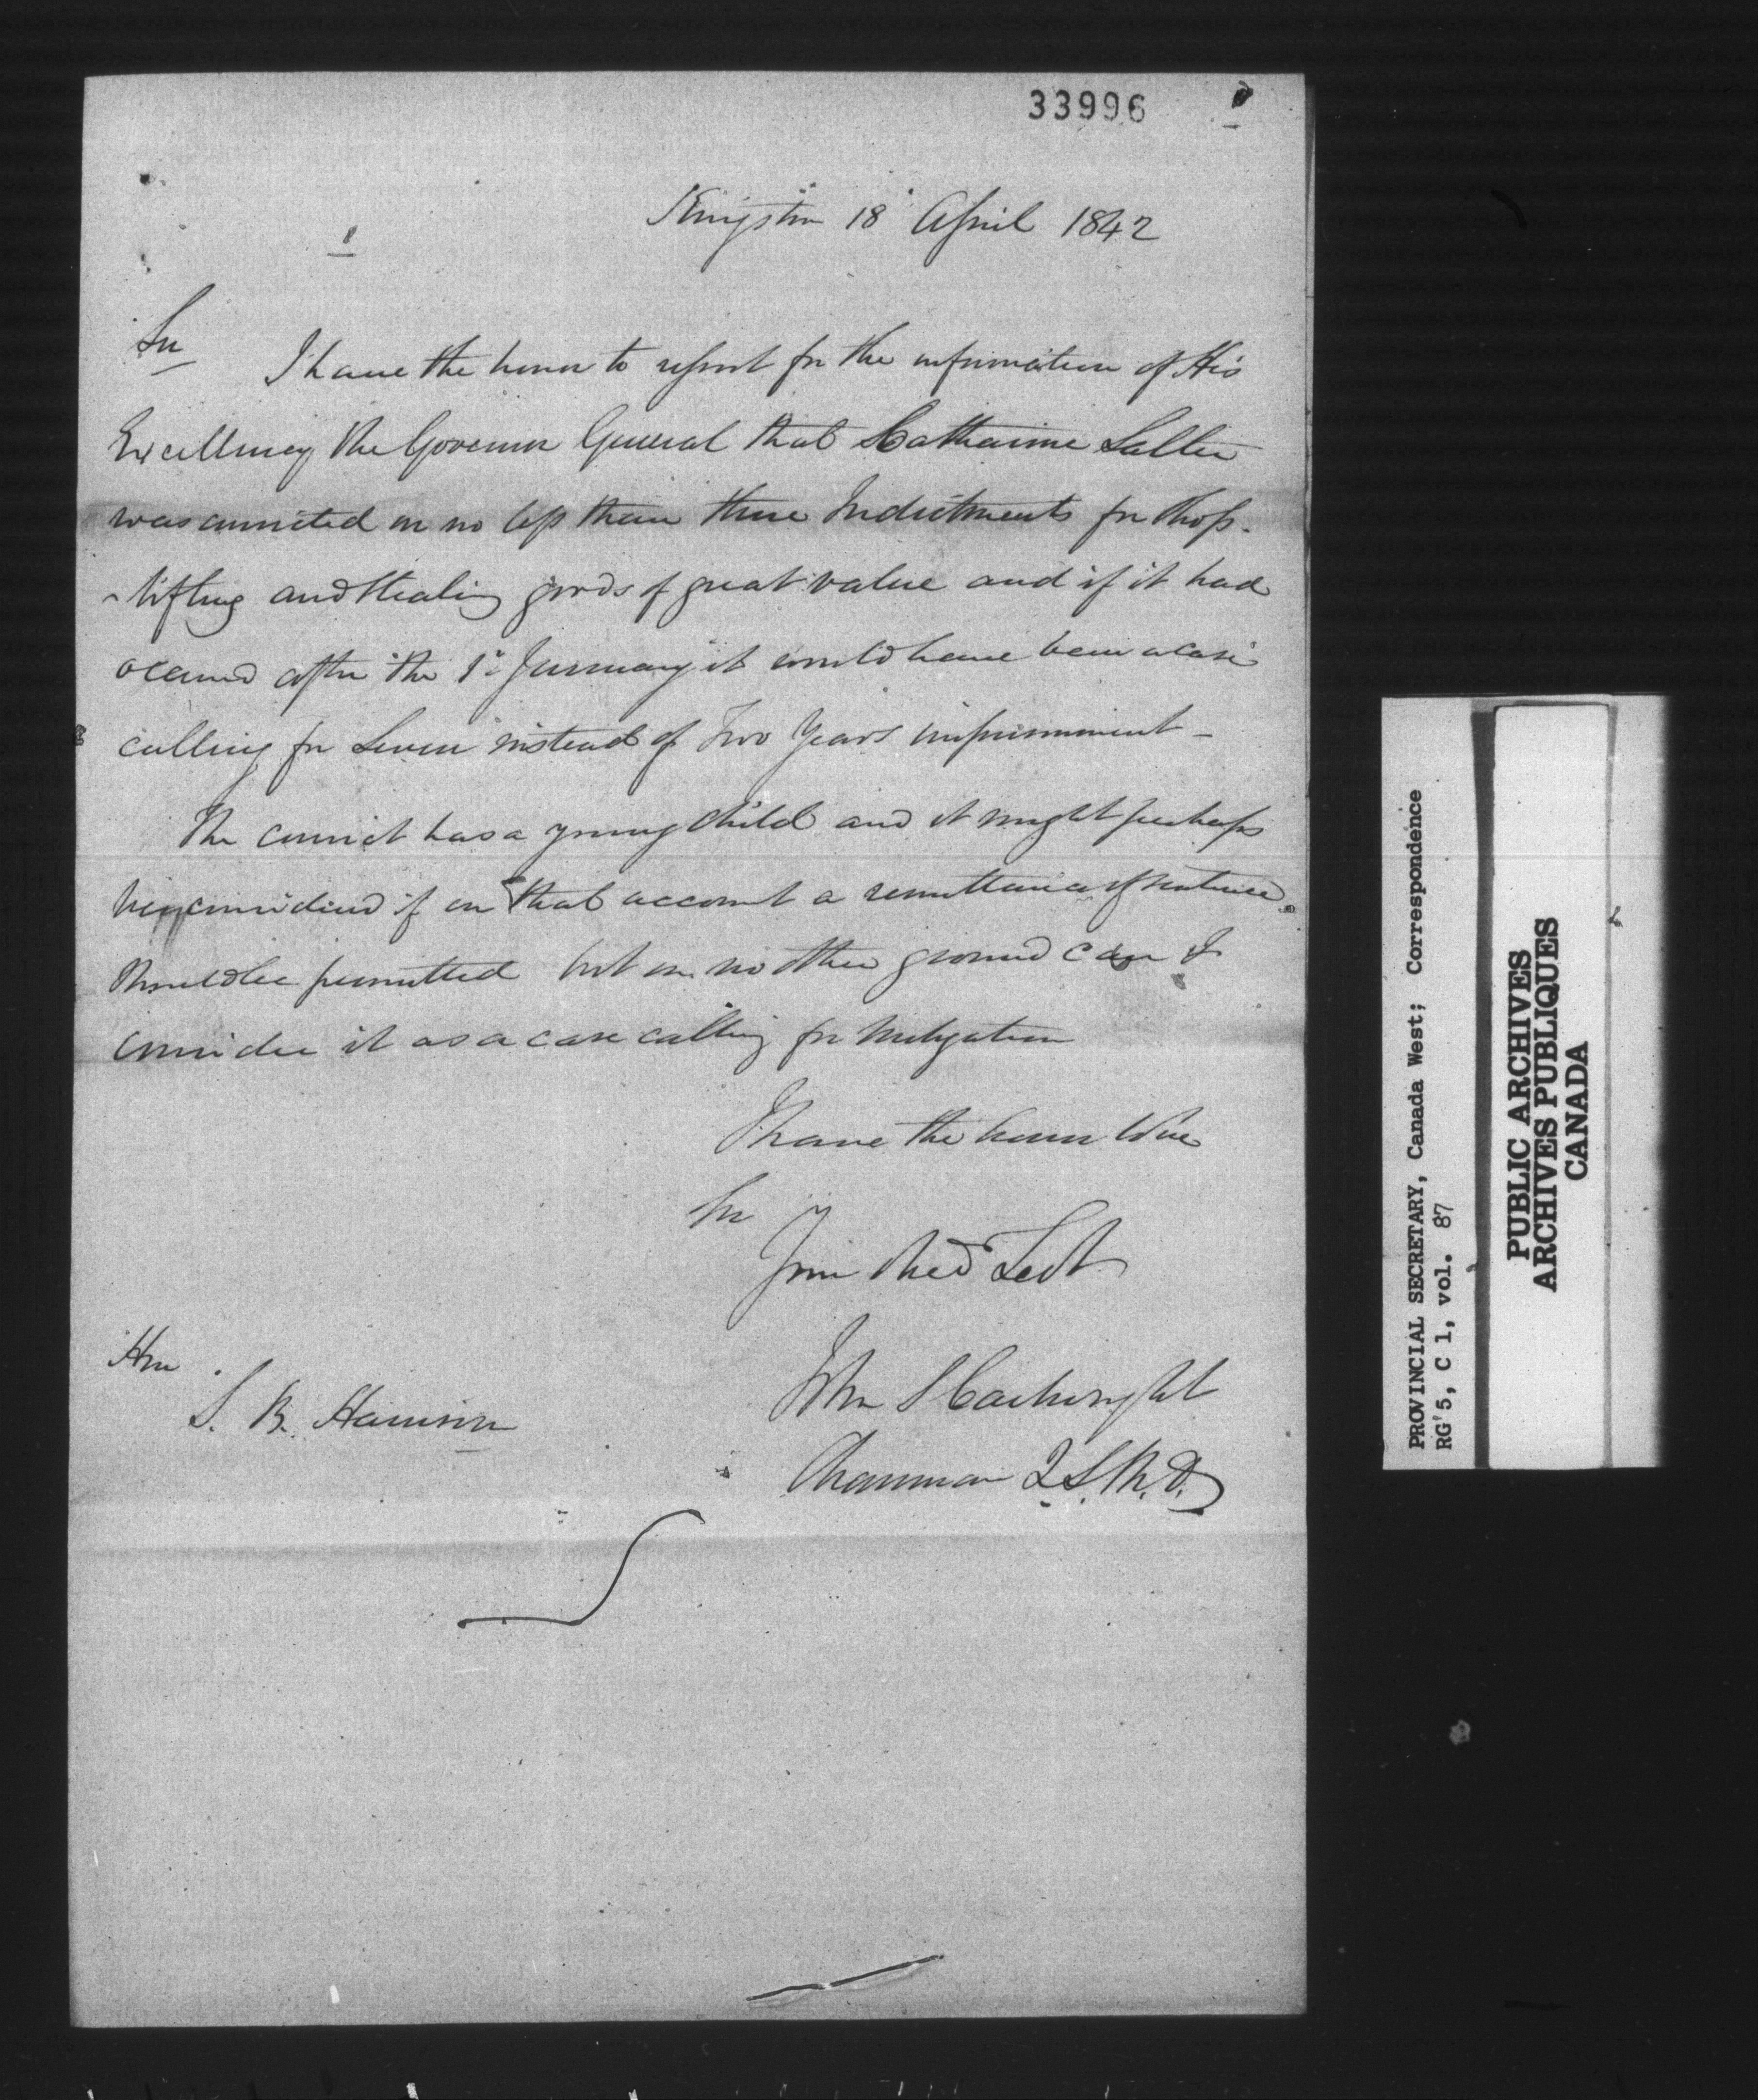 33996
Kingston 18 April 1842
Sir
I have the honor to report for the information of His
Excellency the Governor General that Catharine Salter
was convicted on no less than three Indictments for Shop-
-lifting and Stealing goods of great value and if it had
occurred after the 1st January it would have been a case
calling for Seven instead of Two Years imprisonment -
The convict has a young Child and it might perhaps
be considered if on that account a remittance of sentence
should be permitted but on no other ground can I
consider it as a case calling for Mitigation
I have the honor to be
Sir
Your Obed Sert
John S Cartwright
Chairman Q.S.M.D.
Hon
S. B. Harrison
PROVINCIAL SECRETARY, Canada West; Correspondence
RG 5, C 1, vol. 87
PUBLIC ARCHIVES
ARCHIVES PUBLIQUES
CANADA